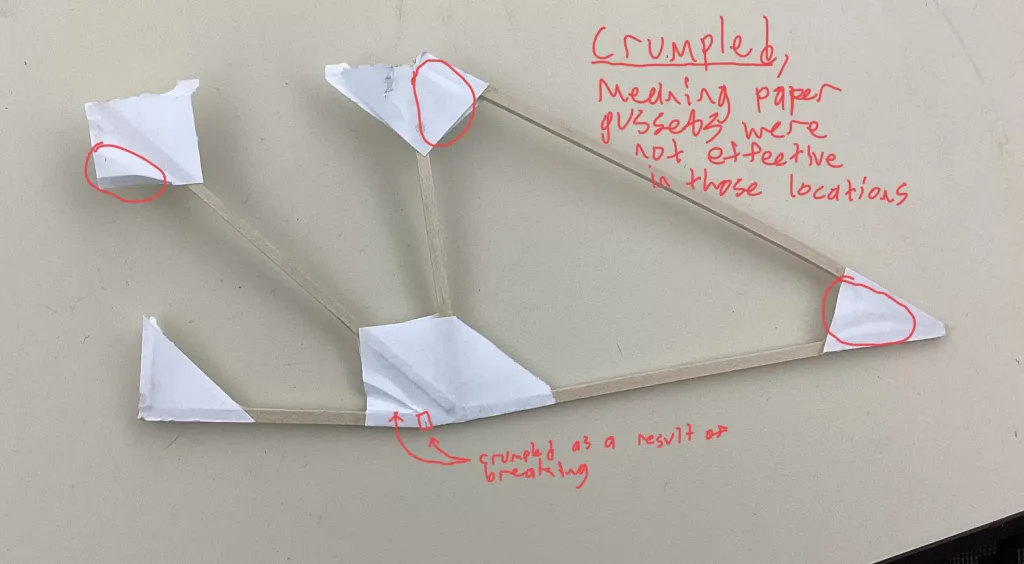 Crumpled,
Meaning paper
gussets were
not effective
in those locations
crumpled as a result of
breaking